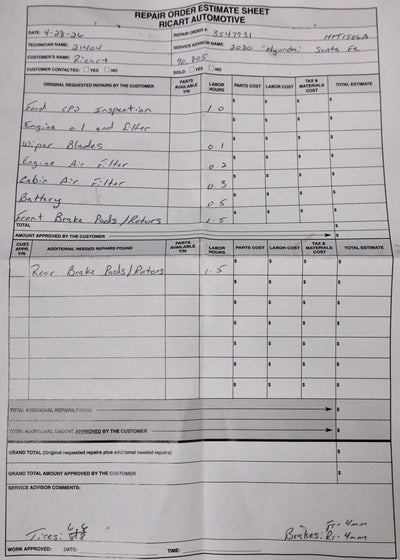 REPAIR ORDER ESTIMATE SHEET
RICART AUTOMOTIVE
DATE: 4-28-26 REPAIR ORDER #: 3547931 HTT1506A
TECHNICIAN NAME: 21404 SERVICE ADVISOR NAME: 2020 Hyundai Santa Fe
CUSTOMER'S NAME: Ricart 90,805
CUSTOMER CONTACTED: YES NO SOLD: YES NO
ORIGINAL REQUESTED REPAIRS BY THE CUSTOMER PARTS AVAILABLE Y/N LABOR HOURS PARTS COST LABOR COST TAX & MATERIALS COST TOTAL ESTIMATE
Ford CPO Inspection 1.0 $ $ $ $
Engine oil and filter $ $ $ $
Wiper Blades 0.1 $ $ $ $
Engine Air Filter 0.2 $ $ $ $
Cabin Air Filter 0.3 $ $ $ $
Battery 0.5 $ $ $ $
Front Brake Pads/Rotors 1.5 $ $ $ $
TOTAL $
AMOUNT APPROVED BY THE CUSTOMER $
CUST. APPR. Y/N ADDITIONAL NEEDED REPAIRS FOUND PARTS AVAILABLE Y/N LABOR HOURS PARTS COST LABOR COST TAX & MATERIALS COST TOTAL ESTIMATE
Rear Brake Pads/Rotors 1.5 $ $ $ $
$ $ $ $
$ $ $ $
$ $ $ $
$ $ $ $
$ $ $ $
TOTAL ADDITIONAL REPAIRS FOUND $
TOTAL ADDITIONAL AMOUNT APPROVED BY THE CUSTOMER $
GRAND TOTAL (Original requested repairs plus additional needed repairs) $
GRAND TOTAL AMOUNT APPROVED BY THE CUSTOMER $
SERVICE ADVISOR COMMENTS:
Fr-4mm
Tires: Brakes: Rr-4mm
WORK APPROVED: DATE: TIME: